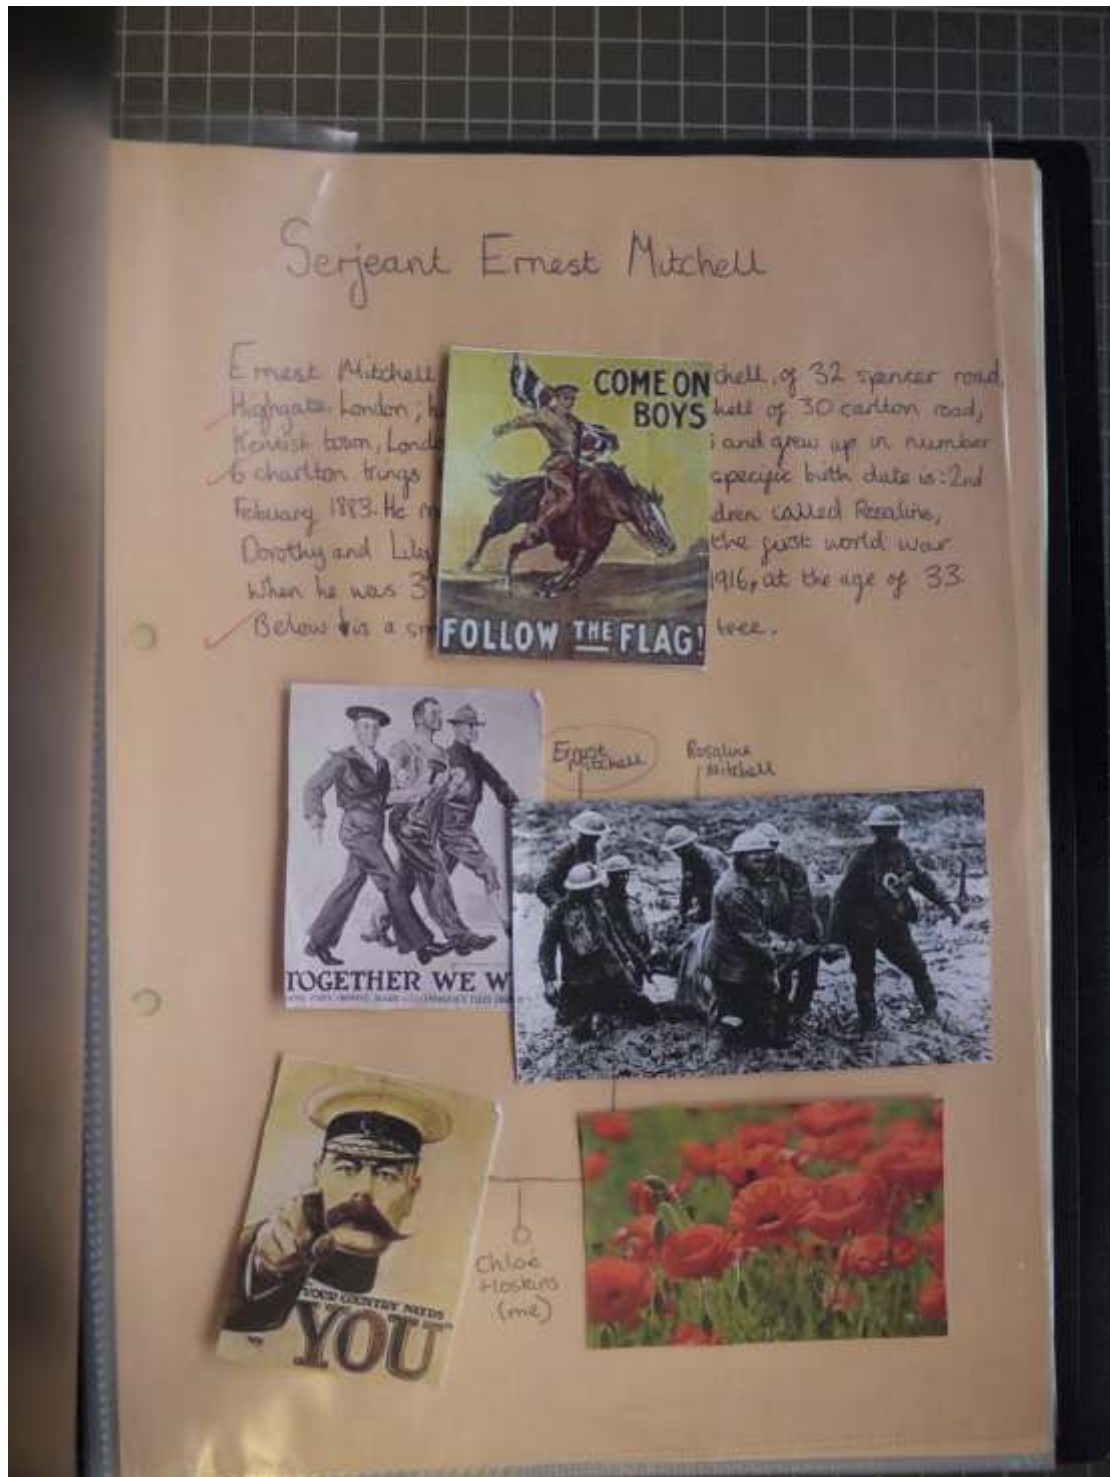 Serjeant Ernest Mitchell
Ernest Mitchell chell, of 32 spencer road
Highgate London; h hell of 30 carlton road,
Kentish town, Londo i and grew up in number
6 charlton specific birth date is: 2nd
Febuary 1883. He m dren called Rosaline,
Dorothy and the first world war
When he was 3 1916, at the age of 33.
Below is a sm tree.
COME ON
BOYS
FOLLOW THE FLAG!
Ernest
Mitchell
Rosaline
Mitchell
TOGETHER WE W
YOUR COUNTRY NEEDS
YOU
Chloe
Hoskins
(me)